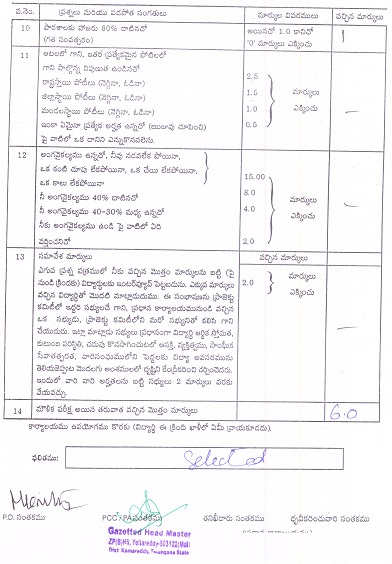 వ.నెం. ప్రశ్నలు మరియు పదపోత సంగతులు మార్కుల వివరములు వచ్చిన మార్కులు
10 పాఠశాలకు హాజరు 80% దాటినచో (గత సంవత్సరం) అయినచో 1.0 కానిచో '0' మార్కులు ఎక్కించు 1
11 ఆటలలో గాని, ఇతర ప్రత్యేకమైన పోటీలలో
గాని పాల్గొన్న నిపుణత ఉండినచో
రాష్ట్రస్థాయి పోటీలు (నెగ్గినా, ఓడినా) 2.5
జిల్లాస్థాయి పోటీలు (నెగ్గినా, ఓడినా) 1.5 మార్కులు
మండలస్థాయి పోటీలు (నెగ్గినా, ఓడినా) 1.0 ఎక్కించు
ఇంకా ఏమైనా ప్రత్యేక అర్హత ఉన్నచో (ఋజువు చూపించి) 0.5
పై వాటిలో ఒక దానిని ఎన్నుకొనవలెను.
12 అంగవైకల్యము ఉన్నచో, నీవు నడవలేక పోయినా,
ఒక కంటి చూపు లేకపోయినా, ఒక చేయి లేకపోయినా,
ఒక కాలు లేకపోయినా 15.00
నీ అంగవైకల్యము 40% దాటినచో 8.0 మార్కులు
నీ అంగవైకల్యము 40-30% మధ్య ఉన్నచో 4.0 ఎక్కించు
నీకు అంగవైకల్యము ఉండి పై వాటిలో ఏది
వర్తించనిచో 2.0
13 సమావేశ మార్కులు వచ్చిన మార్కులు
ఎగువ ప్రశ్న పత్రములో నీకు వచ్చిన మొత్తం మార్కులను బట్టి (పై
నుండి క్రిందకు) విద్యార్థులకు ఇంటర్వ్యూస్ పెట్టబడును. ఎక్కువ మార్కులు 2.0 మార్కులు
వచ్చిన విద్యార్థితో మొదటి మాట్లాడుదుము. ఈ సంభాషణను ప్రాజెక్టు ఎక్కించు
కమిటీలో ఇద్దరి సభ్యులచే గాని, ప్రధాన కార్యాలయమునుండి వచ్చిన
ఒక సభ్యుడు, ప్రాజెక్టు కమిటీలోని మరో సభ్యునితో కలిసి గాని
చేయుదురు. ఇట్లా మాట్లాడు సభ్యులు ప్రధానంగా విద్యార్థి ఆర్థిక స్తోమత,
కుటుంబ పరిస్థితి, చదువు కొనసాగించుటలో ఆసక్తి, వ్యక్తిత్వము, సాంఘీక
సేవాతత్పరత, వారిసంఘములోని పెద్దలకు విద్యా అవసరమును
తెలియజెప్పుట మొదలగు అంశములలో దృష్టిని కేంద్రీకరించి చర్చించెదరు.
ఇందులో వారి వారి అర్హతలను బట్టి సభ్యులు 2 మార్కులు వరకు
వేయవచ్చు.
14 మౌళిక పరీక్ష అయిన తరువాత వచ్చిన మొత్తం మార్కులు 6.0
కార్యాలయము ఉపయోగము కొరకు (విద్యార్థి ఈ క్రింది ఖాళీలో ఏమీ వ్రాయకూడదు).
ఫలితము: Selected
P.D. సంతకము PCC / PA సంతకము తనిఖీదారు సంతకము ధృవీకరించువారి సంతకము
Gazetted Head Master
ZP(B)HS, Yellareddy-503122(Mdl)
Dist. Kamareddy, Telangana State